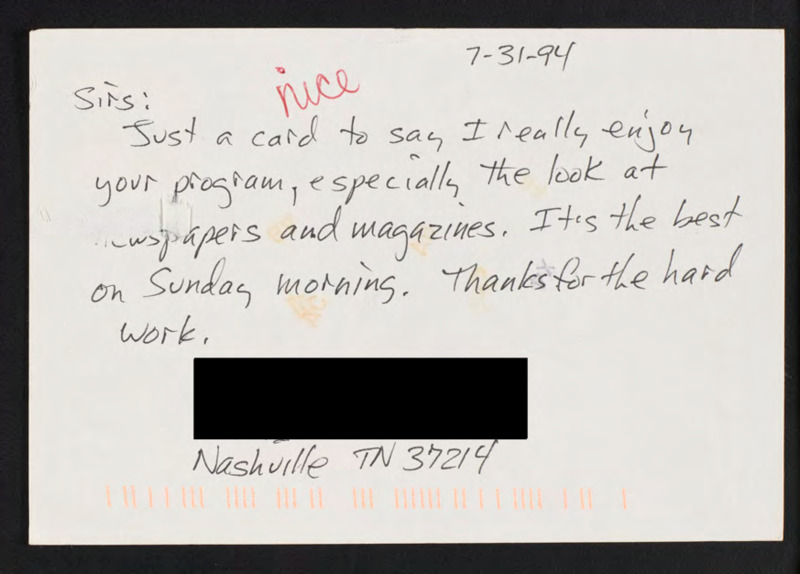 7-31-94
nice
Sirs:
Just a card to say I really enjoy
your program, especially the look at
newspapers and magazines. It's the best
on Sunday morning. Thanks for the hard
work.
Nashville TN 37214